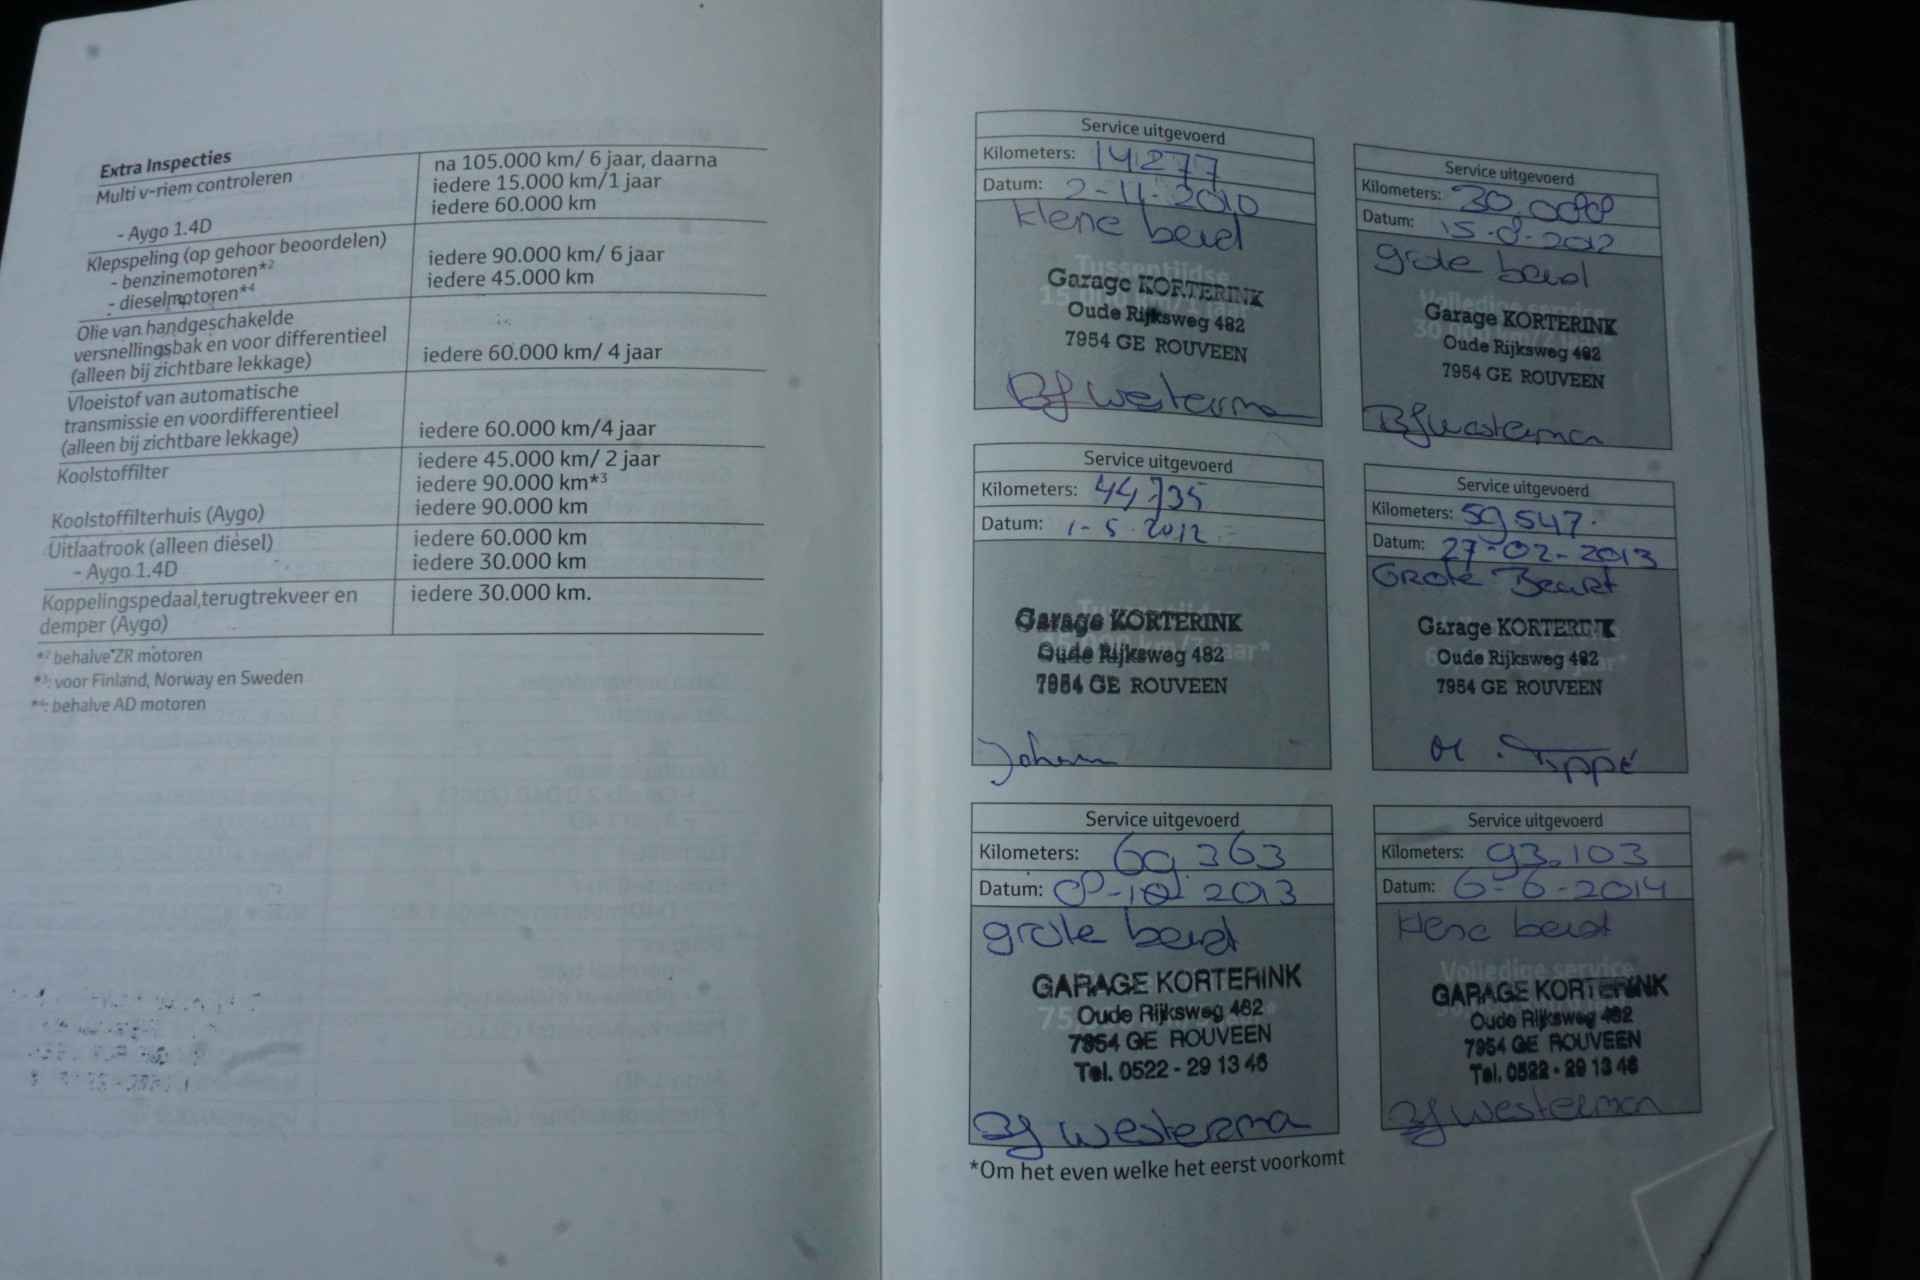 Extra Inspecties
Multi v-riem controleren
na 105.000 km/ 6 jaar, daarna
iedere 15.000 km/1 jaar
- Aygo 1.4D
iedere 60.000 km
Klepspeling (op gehoor beoordelen)
- benzinemotoren*2
iedere 90.000 km/ 6 jaar
- dieselmotoren*4
iedere 45.000 km
Olie van handgeschakelde
versnellingsbak en voor differentieel
(alleen bij zichtbare lekkage)
iedere 60.000 km/ 4 jaar
Vloeistof van automatische
transmissie en voordifferentieel
(alleen bij zichtbare lekkage)
iedere 60.000 km/4 jaar
Koolstoffilter
iedere 45.000 km/ 2 jaar
iedere 90.000 km*3
Koolstoffilterhuis (Aygo)
iedere 90.000 km
Uitlaatrook (alleen diesel)
iedere 60.000 km
- Aygo 1.4D
iedere 30.000 km
Koppelingspedaal,terugtrekveer en
demper (Aygo)
iedere 30.000 km.
*2 behalve ZR motoren
*3: voor Finland, Norway en Sweden
*4: behalve AD motoren
Service uitgevoerd
Kilometers: 14.277
Datum: 2-11-2010
klene beurt
Tussentijdse
Garage KORTERINK
Oude Rijksweg 482
7954 GE ROUVEEN
Bj Westerma
Service uitgevoerd
Kilometers:
Datum: 15-8-2012
grote beurt
Volledige service
Garage KORTERINK
Oude Rijksweg 482
7954 GE ROUVEEN
Bj Westerman
Service uitgevoerd
Kilometers: 44,735
Datum: 1-5-2012
Garage KORTERINK
Oude Rijksweg 482
7954 GE ROUVEEN
Johan
Service uitgevoerd
Kilometers: 59547
Datum: 27-02-2013
GROTE Beurt
Garage KORTERINK
Oude Rijksweg 482
7954 GE ROUVEEN
Service uitgevoerd
Kilometers: 69363
Datum: 08-10-2013
grote beurt
GARAGE KORTERINK
Oude Rijksweg 482
7954 GE ROUVEEN
Tel. 0522 - 29 13 46
Bj Westerma
Service uitgevoerd
Kilometers: 93.103
Datum: 6-6-2014
klene beurt
Volledige service
GARAGE KORTERINK
Oude Rijksweg 482
7954 GE ROUVEEN
Tel. 0522 - 29 13 46
Bj Westerman
*Om het even welke het eerst voorkomt